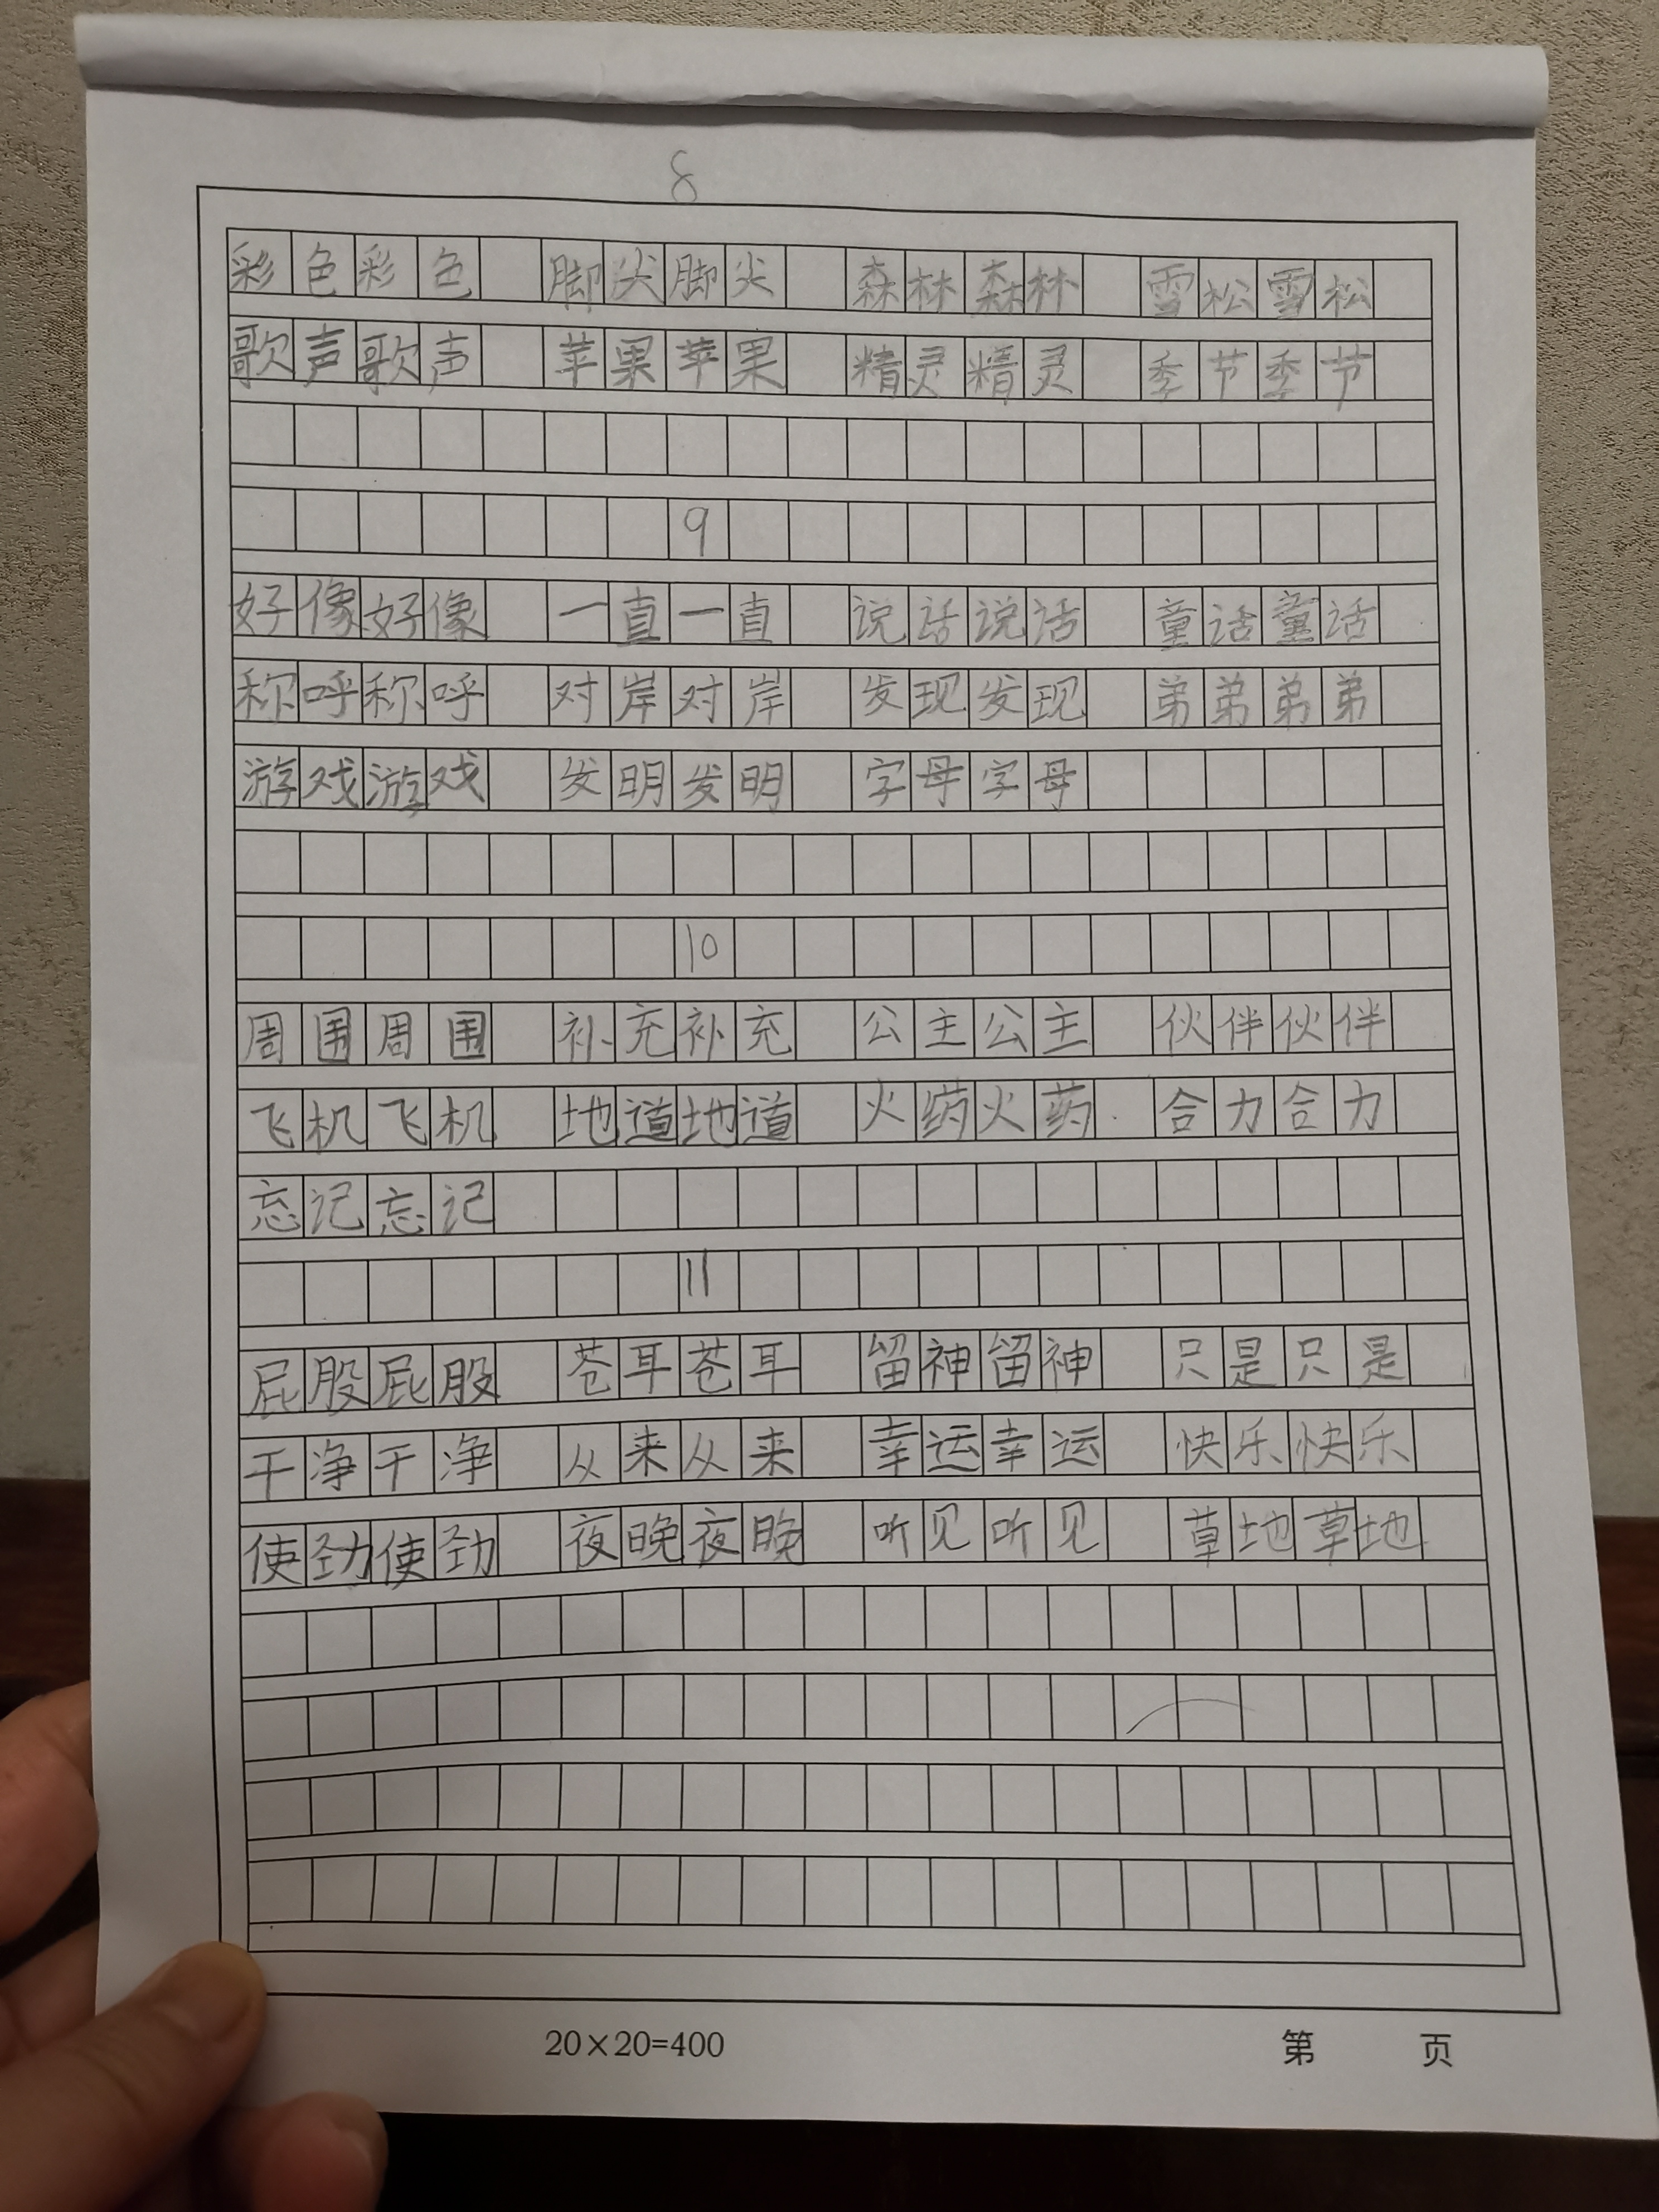 8
彩色彩色 脚尖脚尖 森林森林 雪松雪松
歌声歌声 苹果苹果 精灵精灵 季节季节
9
好像好像 一直一直 说话说话 童话童话
称呼称呼 对岸对岸 发现发现 弟弟弟弟
游戏游戏 发明发明 字母字母
10
周围周围 补充补充 公主公主 伙伴伙伴
飞机飞机 地道地道 火药火药 合力合力
忘记忘记
11
屁股屁股 苍耳苍耳 留神留神 只是只是
干净干净 从来从来 幸运幸运 快乐快乐
使劲使劲 夜晚夜晚 听见听见 草地草地
20×20=400 第 页